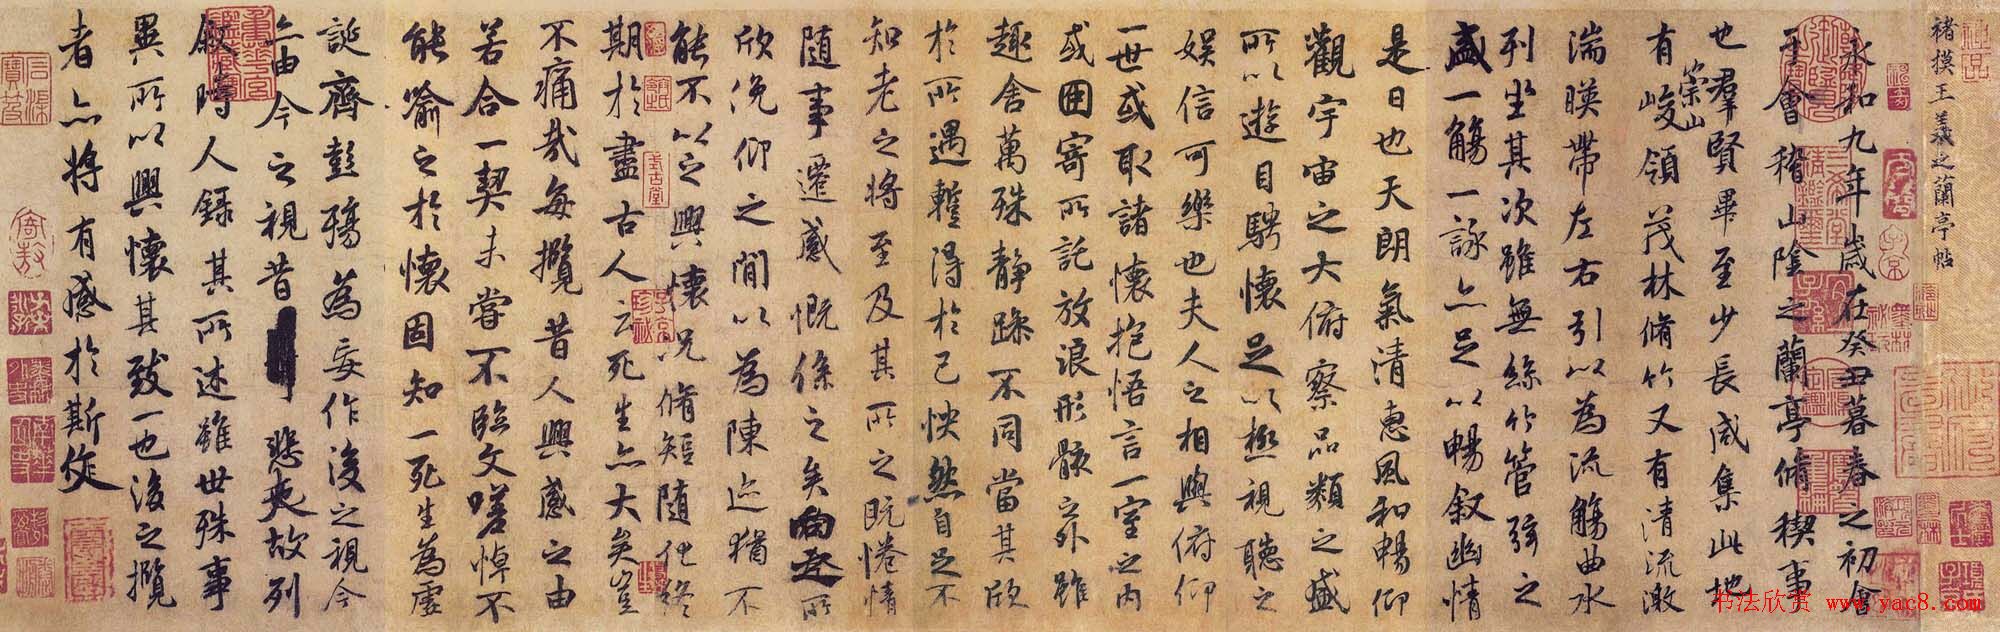 褚摸王羲之蘭亭帖
永和九年歲在癸丑暮春之初會
于會稽山陰之蘭亭脩稧事
也羣賢畢至少長咸集此地
有崇山峻領茂林脩竹又有清流激
湍暎帶左右引以為流觴曲水
列坐其次雖無絲竹管弦之
盛一觴一詠亦足以暢叙幽情
是日也天朗氣清惠風和暢仰
觀宇宙之大俯察品類之盛
所以遊目騁懷足以極視聽之
娛信可樂也夫人之相與俯仰
一世或取諸懷抱悟言一室之內
或因寄所託放浪形骸之外雖
趣舍萬殊靜躁不同當其欣
於所遇蹔得於己怏然自足不
知老之將至及其所之既惓情
隨事遷感慨係之矣向之所
欣俛仰之間以為陳迹猶不
能不以之興懷況脩短隨化終
期於盡古人云死生亦大矣豈
不痛哉每攬昔人興感之由
若合一契未嘗不臨文嗟悼不
能喻之於懷固知一死生為虛
誕齊彭殤為妄作後之視今
亦由今之視昔悲夫故列
叙時人錄其所述雖世殊事
異所以興懷其致一也後之攬
者亦將有感於斯文
書法欣赏 www.yac8.com